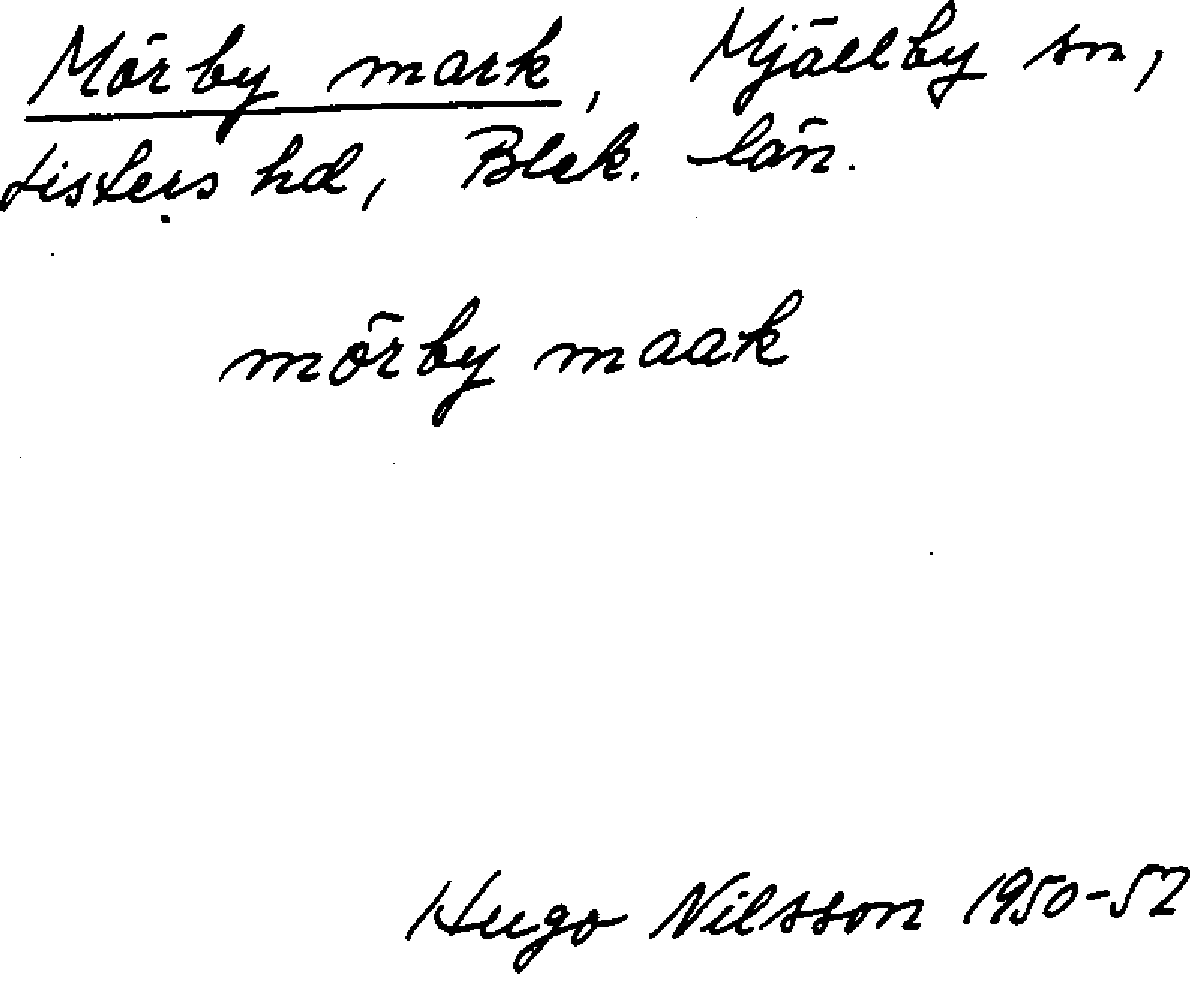 Mörby mark, Mjällby sn,
Listers hd, Blek. län.
mörby maak
Hugo Nilsson 1950-52